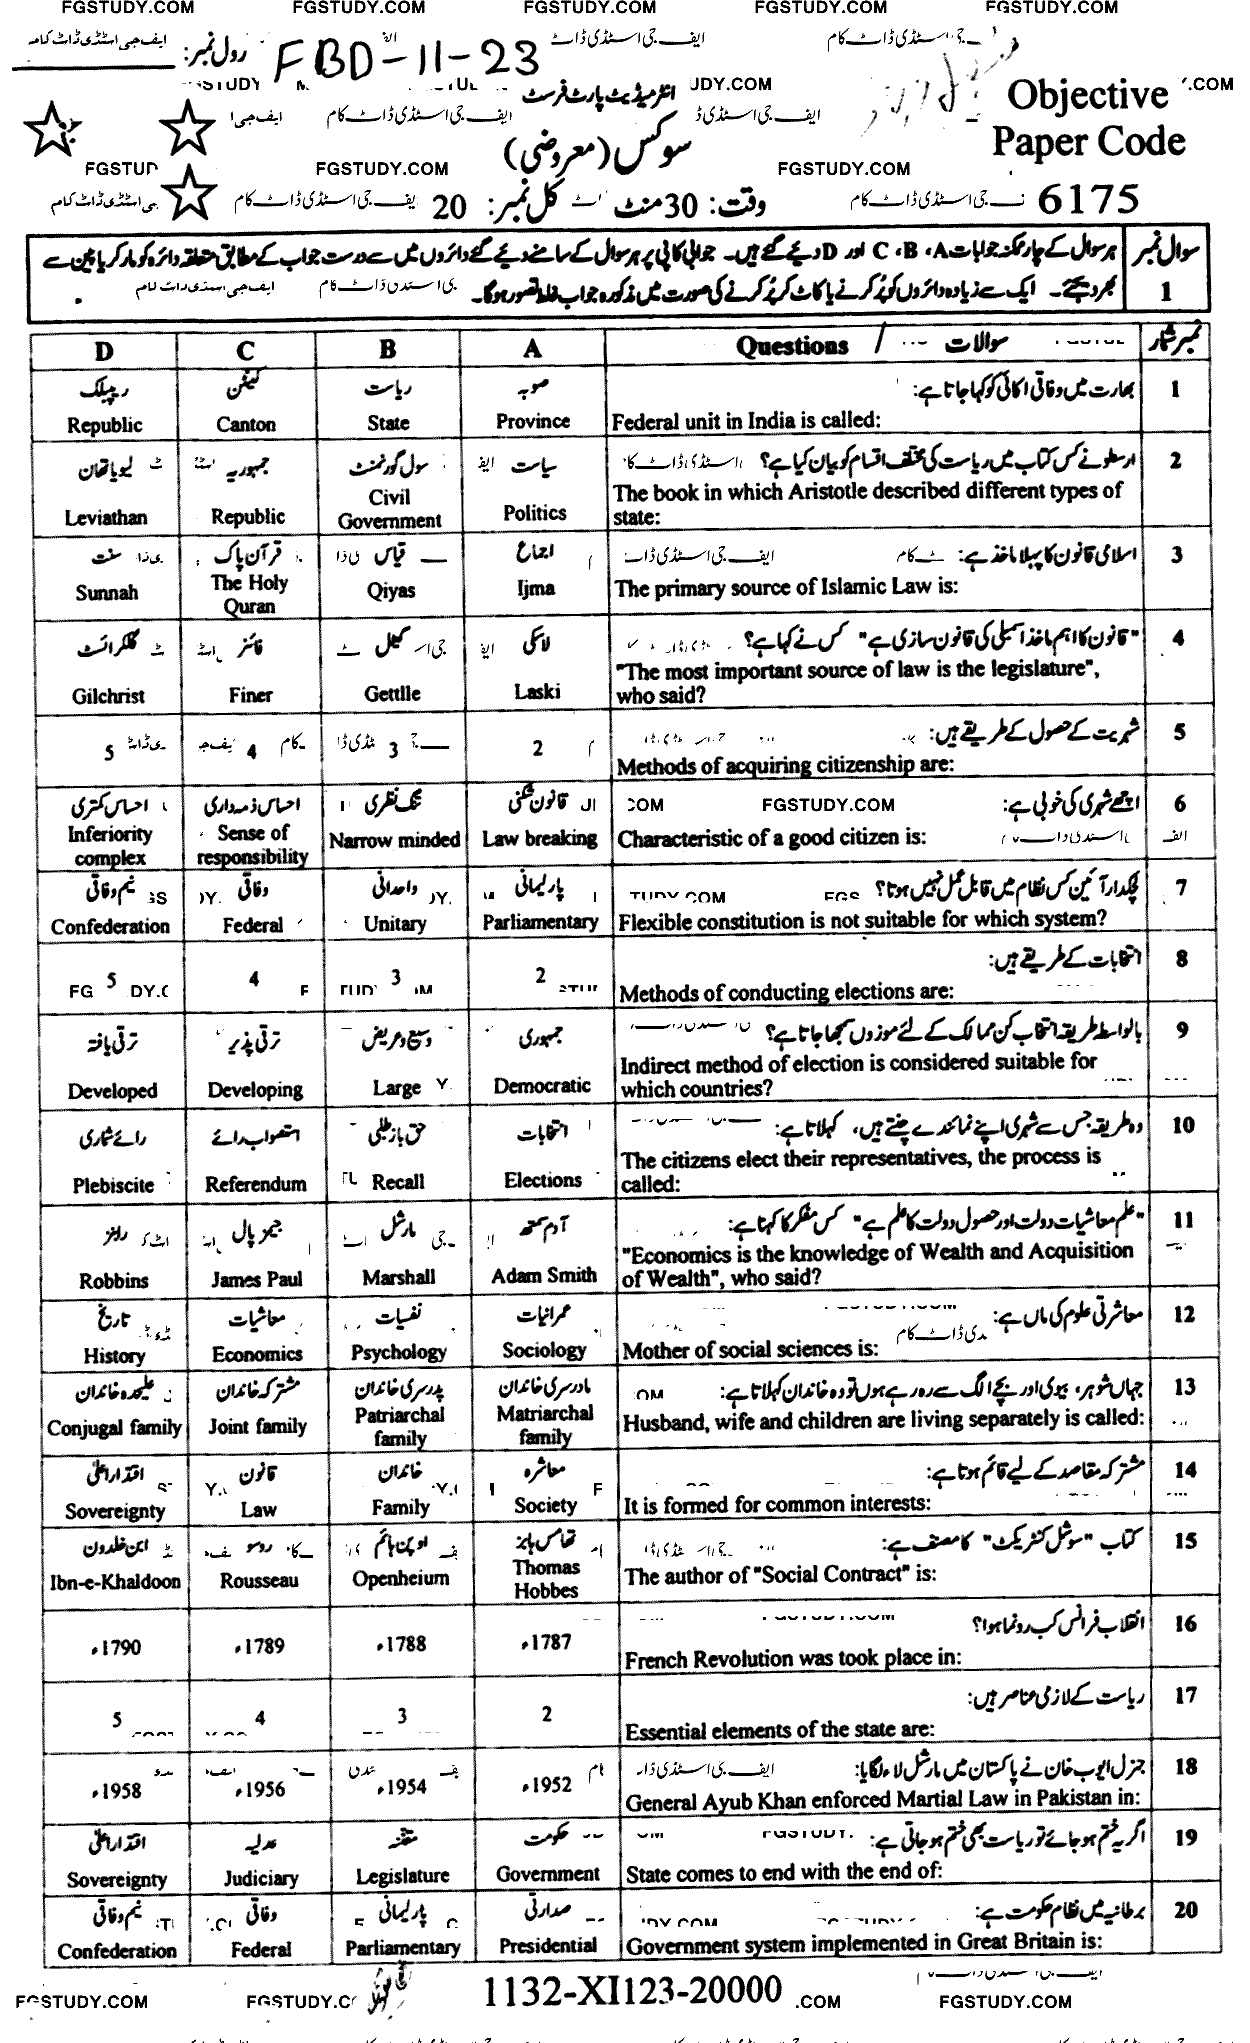 FGSTUDY.COM FGSTUDY.COM FGSTUDY.COM FGSTUDY.COM FGSTUDY.COM
رول نمبر: FBD-11-23
انٹرمیڈیٹ پارٹ فرسٹ
Objective
Paper Code
سوکس (معروضی)
FGSTUDY.COM FGSTUDY.COM
6175
وقت: 30 منٹ کل نمبر: 20
سوال نمبر 1
ہر سوال کے چار ممکنہ جوابات A، B، C اور D دیئے گئے ہیں۔ جوابی کاپی پر ہر سوال کے سامنے دیئے گئے دائروں میں سے درست جواب کے مطابق متعلقہ دائرہ کو مارکر یا پین سے
بھر دیجئے۔ ایک سے زیادہ دائروں کو پُر کرنے یا کاٹ کر پُر کرنے کی صورت میں مذکورہ جواب غلط تصور ہوگا۔
D C B A Questions / سوالات نمبر شمار
1 بھارت میں وفاقی اکائی کو کہا جاتا ہے: صوبہ ریاست کینٹن ریپبلک
Federal unit in India is called: Province State Canton Republic
2 ارسطو نے کس کتاب میں ریاست کی مختلف اقسام کو بیان کیا ہے؟ سیاست سول گورنمنٹ جمہوریہ لیویاتھان
The book in which Aristotle described different types of
state: Politics Civil Government Republic Leviathan
3 اسلامی قانون کا پہلا ماخذ ہے: اجماع قیاس قرآن پاک سنت
The primary source of Islamic Law is: Ijma Qiyas The Holy Quran Sunnah
4 "قانون کا اہم ماخذ اسمبلی کی قانون سازی ہے" کس نے کہا ہے؟ لاسکی گیٹل فائنر گلکرائسٹ
"The most important source of law is the legislature",
who said? Laski Gettlle Finer Gilchrist
5 شہریت کے حصول کے طریقے ہیں:
Methods of acquiring citizenship are: 2 3 4 5
6 اچھے شہری کی خوبی ہے: قانون شکنی تنگ نظری احساس ذمہ داری احساس کمتری
Characteristic of a good citizen is: Law breaking Narrow minded Sense of responsibility Inferiority complex
7 لچکدار آئین کس نظام میں قابل عمل نہیں ہوتا؟ پارلیمانی واحدانی وفاقی نیم وفاقی
Flexible constitution is not suitable for which system? Parliamentary Unitary Federal Confederation
8 انتخابات کے طریقے ہیں:
Methods of conducting elections are: 2 3 4 5
9 بالواسطہ طریقہ انتخاب کن ممالک کے لئے موزوں سمجھا جاتا ہے؟ جمہوری وسیع و عریض ترقی پذیر ترقی یافتہ
Indirect method of election is considered suitable for
which countries? Democratic Large Developing Developed
10 وہ طریقہ جس سے شہری اپنے نمائندے چنتے ہیں، کہلاتا ہے: انتخابات حق بازطلبی استصواب رائے رائے شماری
The citizens elect their representatives, the process is
called: Elections Recall Referendum Plebiscite
11 "علم معاشیات دولت اور حصول دولت کا علم ہے" کس مفکر کا کہنا ہے: آدم سمتھ مارشل جیمز پال رابنز
"Economics is the knowledge of Wealth and Acquisition
of Wealth", who said? Adam Smith Marshall James Paul Robbins
12 معاشرتی علوم کی ماں ہے: عمرانیات نفسیات معاشیات تاریخ
Mother of social sciences is: Sociology Psychology Economics History
13 جہاں شوہر، بیوی اور بچے الگ سے رہ رہے ہوں تو وہ خاندان کہلاتا ہے: مادرسری خاندان پدرسری خاندان مشترکہ خاندان علیحدہ خاندان
Husband, wife and children are living separately is called: Matriarchal family Patriarchal family Joint family Conjugal family
14 مشترکہ مقاصد کے لیے قائم ہوتا ہے: معاشرہ خاندان قانون اقتدار اعلیٰ
It is formed for common interests: Society Family Law Sovereignty
15 کتاب "سوشل کنٹریکٹ" کا مصنف ہے: تھامس ہابز اوپن ہائم روسو ابن خلدون
The author of "Social Contract" is: Thomas Hobbes Openheium Rousseau Ibn-e-Khaldoon
16 انقلاب فرانس کب رونما ہوا؟
French Revolution was took place in: 1787ء 1788ء 1789ء 1790ء
17 ریاست کے لازمی عناصر ہیں:
Essential elements of the state are: 2 3 4 5
18 جنرل ایوب خان نے پاکستان میں مارشل لاء لگایا:
General Ayub Khan enforced Martial Law in Pakistan in: 1952ء 1954ء 1956ء 1958ء
19 اگر یہ ختم ہو جائے تو ریاست بھی ختم ہو جاتی ہے: حکومت مقننہ عدلیہ اقتدار اعلیٰ
State comes to end with the end of: Government Legislature Judiciary Sovereignty
20 برطانیہ میں نظام حکومت ہے: صدارتی پارلیمانی وفاقی نیم وفاقی
Government system implemented in Great Britain is: Presidential Parliamentary Federal Confederation
1132-XI123-20000
FGSTUDY.COM FGSTUDY.C .COM FGSTUDY.COM